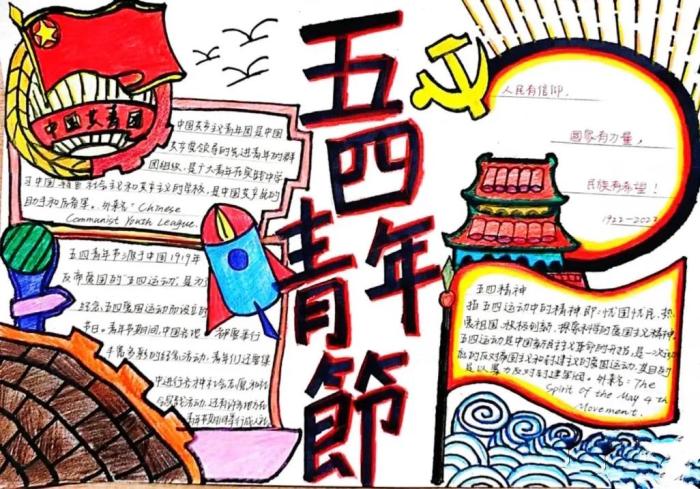 五四
青年
節
中国共青团
中国共产主义青年团是中国
共产党领导的先进青年的群
团组织，是广大青年在实践中学
习中国特色社会主义和共产主义的学校，是中国共产党的
助手和后备军。外来名：Chinese
Communist Youth League.
五四青年节源于中国1919年
反帝爱国的"五四运动"，是为了
纪念五四爱国运动而设立的
节日。青年节期间，中国各地 都要举行
丰富多彩的纪念活动，青年们还要集
中进行各种社会志愿和社
会实践活动，还有许多地方在
青年节期间举行成人礼
人民有信仰，
国家有力量，
民族有希望！
1922-2022
五四精神
指五四运动中的精神即：忧国忧民，热
爱祖国，积极创新，探索科学的爱国主义精神。
五四运动是中国新民主主义革命的开端，是一次
彻底的反对帝国主义和封建主义的爱国运动，其目的
是以暴力反对封建
外来名：The
Spirit of the May 4th
Movement.